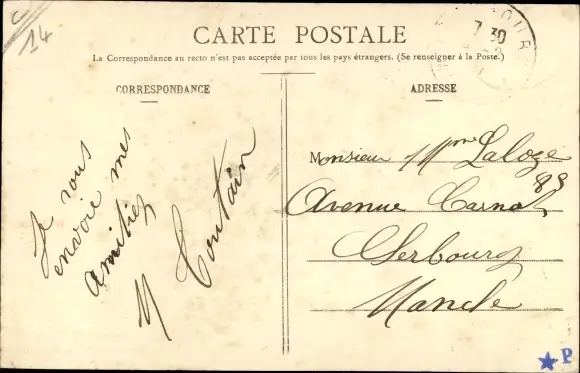 14
CARTE POSTALE
La Correspondance au recto n'est pas acceptée par tous les pays étrangers. (Se renseigner à la Poste.)
CORRESPONDANCE
Je vous
envoie mes
amitiez
M Coutain
ADRESSE
7 30
Monsieur Mme Laloze
Avenue Carnot 89
Serbourg
Manche
P